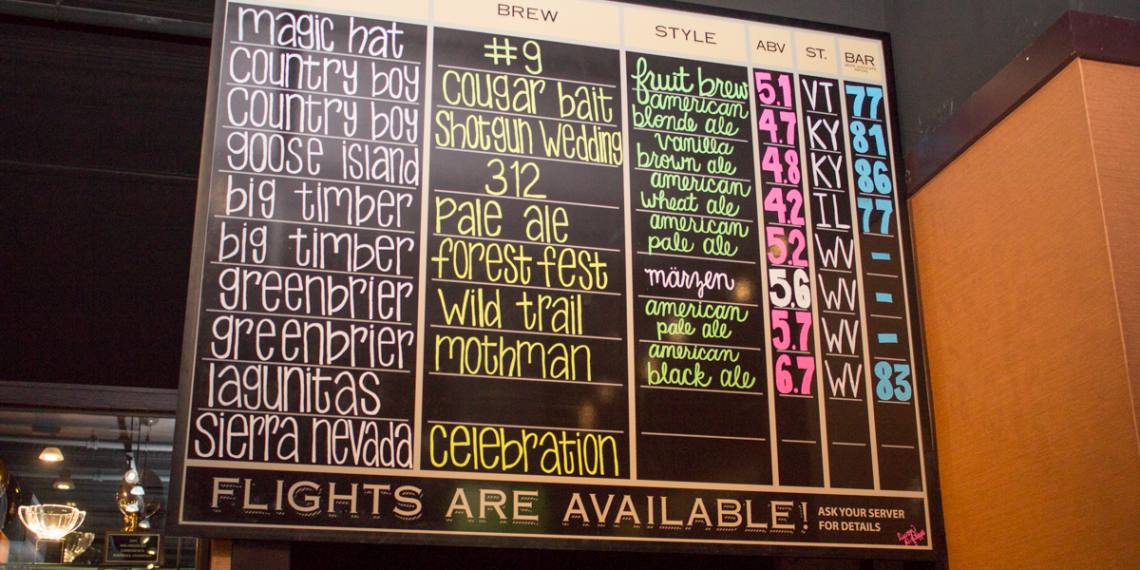 BREW STYLE ABV ST. BAR
magic hat #9 fruit brew 5.1 VT 77
country boy cougar bait american blonde ale 4.7 KY 81
country boy shotgun wedding vanilla brown ale 4.8 KY 86
goose island 312 american wheat ale 4.2 IL 77
big timber pale ale american pale ale 5.2 WV -
big timber forest fest märzen 5.6 WV -
greenbrier wild trail american pale ale 5.7 WV -
greenbrier mothman american black ale 6.7 WV 83
lagunitas
sierra nevada celebration
FLIGHTS ARE AVAILABLE! ASK YOUR SERVER
FOR DETAILS